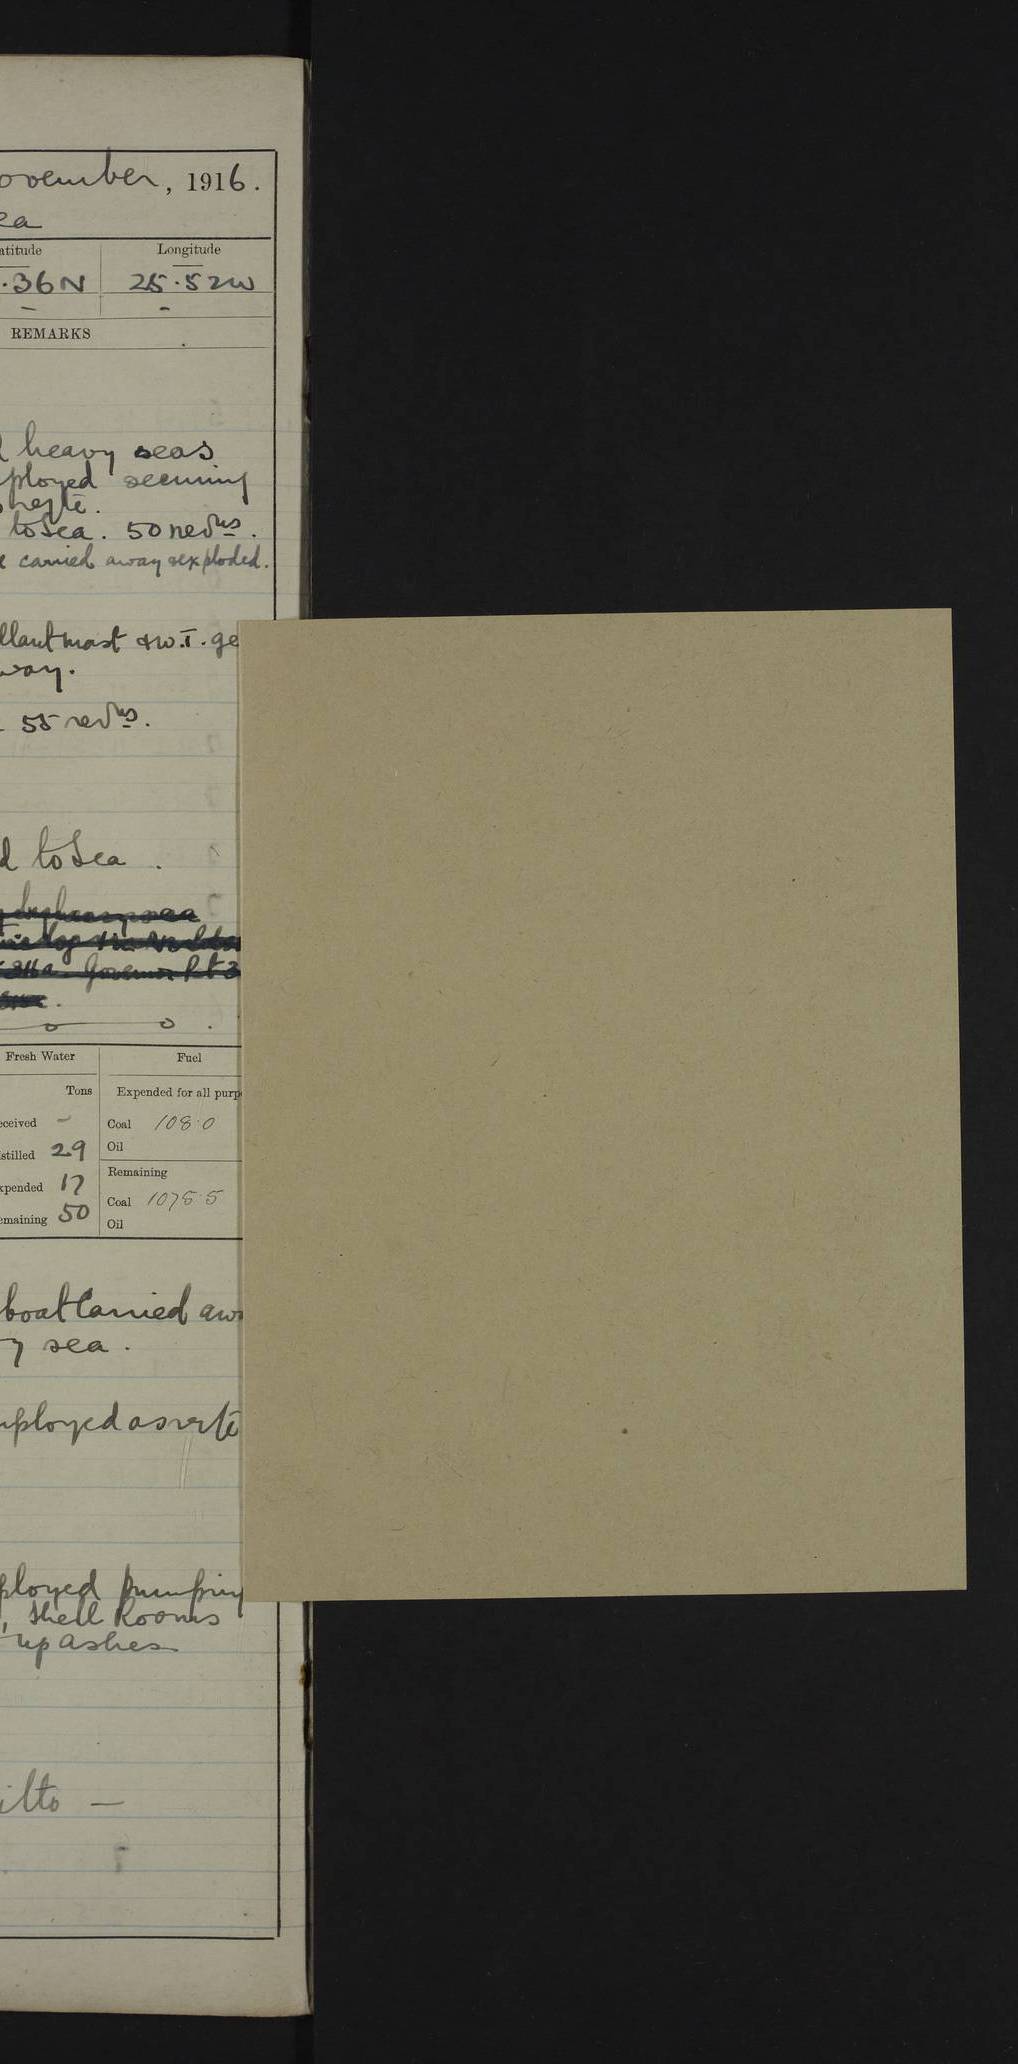 ovember, 1916.
ea
atitude Longitude
.36N 25.52W
REMARKS
heavy seas
ployed securing
to Sea. 50 revns.
carried away & exploded.
llant mast & W.T. ge
way.
55 revns.
d to Sea.
Fresh Water Fuel
Tons Expended for all purp
eceived - Coal 108.0
stilled 29 Oil
xpended 17 Remaining
emaining 50 Coal 1075.5
Oil
boat carried awa
y sea.
mployed as reqte
ployed pumping
, Shell Rooms
up ashes
itto —